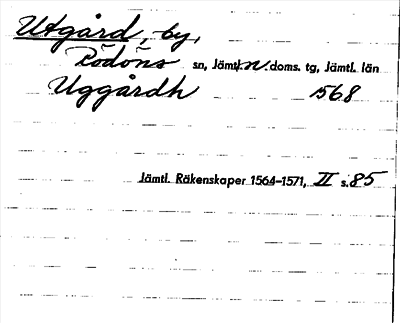 Utgård, by,
Rödöns sn, Jämtl. n. doms. tg, Jämtl. län
Uggårdh 1568
Jämtl. Räkenskaper 1564-1571, II s. 85